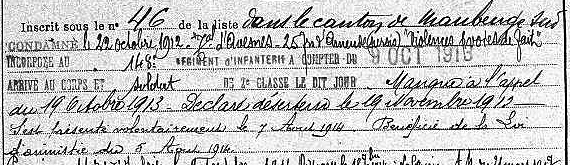 Inscrit sous le n° 46 de la liste dans le canton de Maubeuge Sud
CONDAMNÉ le 22 octobre 1912 d'Avesnes - 25 f. d'amende "Violences & voies de fait"
INCORPORÉ AU 148e RÉGIMENT D'INFANTERIE A COMPTER DU 9 OCT 1913
ARRIVÉ AU CORPS ET soldat DE 2e CLASSE LE DIT JOUR Manqua à l'appel
du 19 Octobre 1913. Déclaré déserteur le 19 Novembre 1912
S'est présenté volontairement le 7 Aout 1914. Bénéficié de la Loi
d'amnistie du 5 Aout 1914.